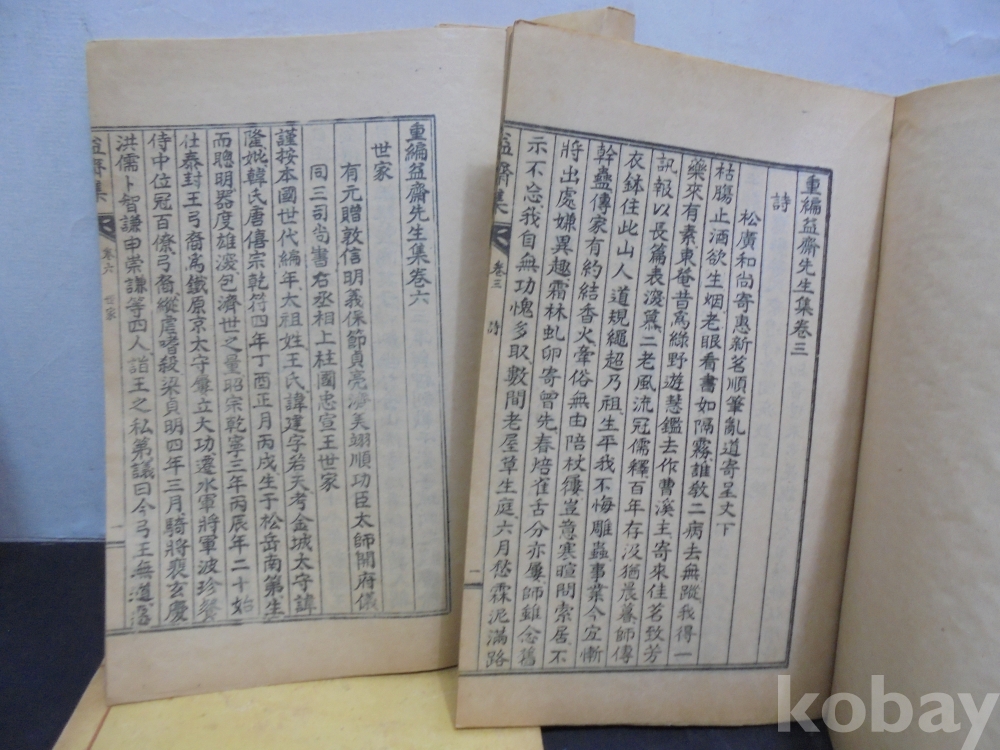 重編益齋先生集卷三
詩
松廣和尚寄惠新茗順筆亂道寄呈丈下
枯膓止酒欲生烟老眼看書如隔霧誰教二病去無蹤我得一
藥來有素東菴昔爲綠野遊慧鑑去作曹溪主寄來佳茗致芳
訊報以長篇表深慕二老風流冠儒釋百年存没猶晨暮師傳
衣鉢住此山人道規繩超乃祖生平我不悔雕蟲事業今宜慚
幹蠱傳家有約結香火牽俗無由陪杖屨豈意寒暄問索居不
將出處嫌異趣霜林虬卵寄曾先春焙雀舌分亦屢師雖念舊
示不忘我自無功愧多取數間老屋草生庭六月愁霖泥滿路
益齋集 卷三 詩 一
重編益齋先生集卷六
世家
有元贈敦信明義保節貞亮濟美翊順功臣太師開府儀
同三司尚書右丞相上柱國忠宣王世家
謹按本國世代編年太祖姓王氏諱建字若天考金城太守諱
隆妣韓氏唐僖宗乾符四年丁酉正月丙戌生于松岳南第生
而聰明器度雄深包濟世之量昭宗乾寧三年丙辰年二十始
仕泰封王弓裔爲鐵原京太守屢立大功遷水軍將軍波珍餐
侍中位冠百僚弓裔縱虐嗜殺梁貞明四年三月騎將裴玄慶
洪儒卜智謙申崇謙等四人詣王之私第議曰今弓王無道
益齋集 卷六 世家 一
kobay